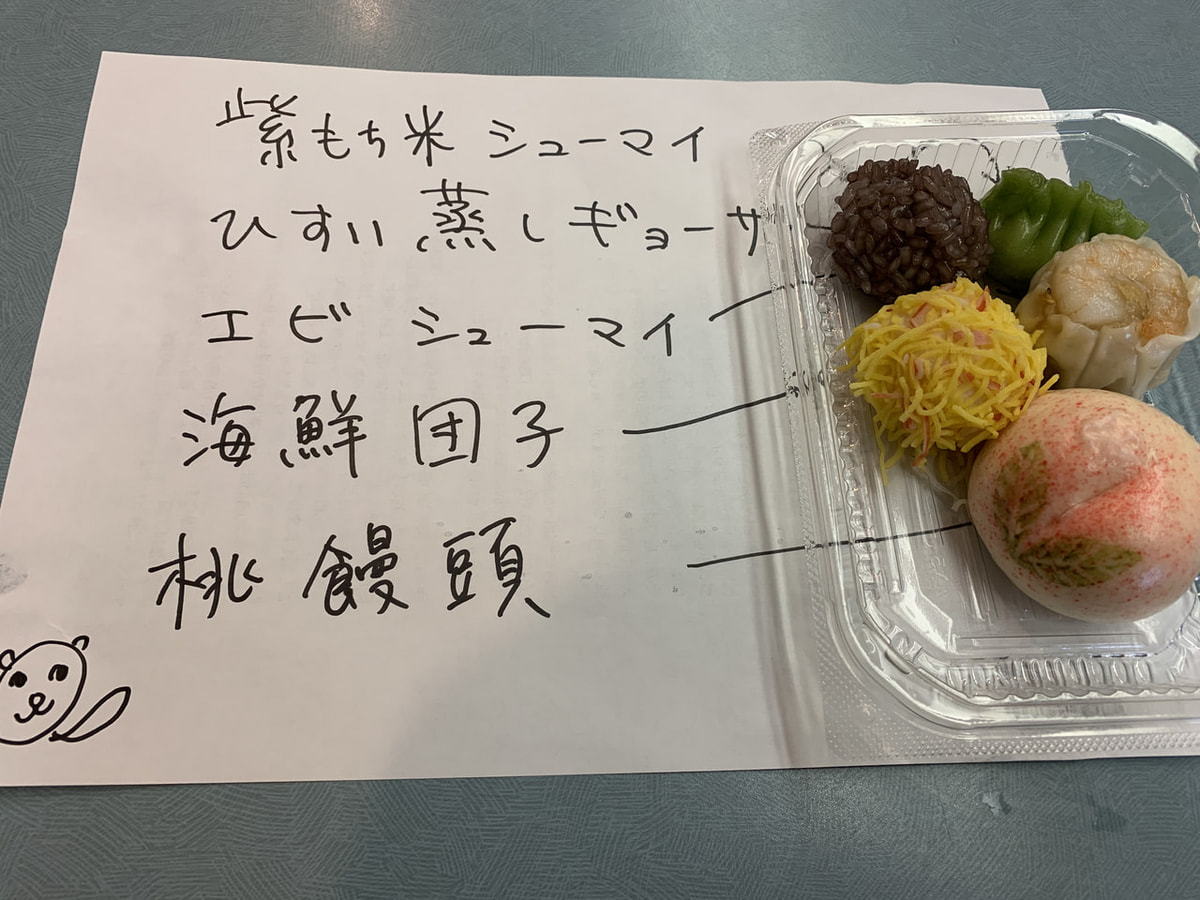 紫もち米 シューマイ
ひすい 蒸し ギョーザ
エビ シューマイ
海鮮 団子
桃 饅頭